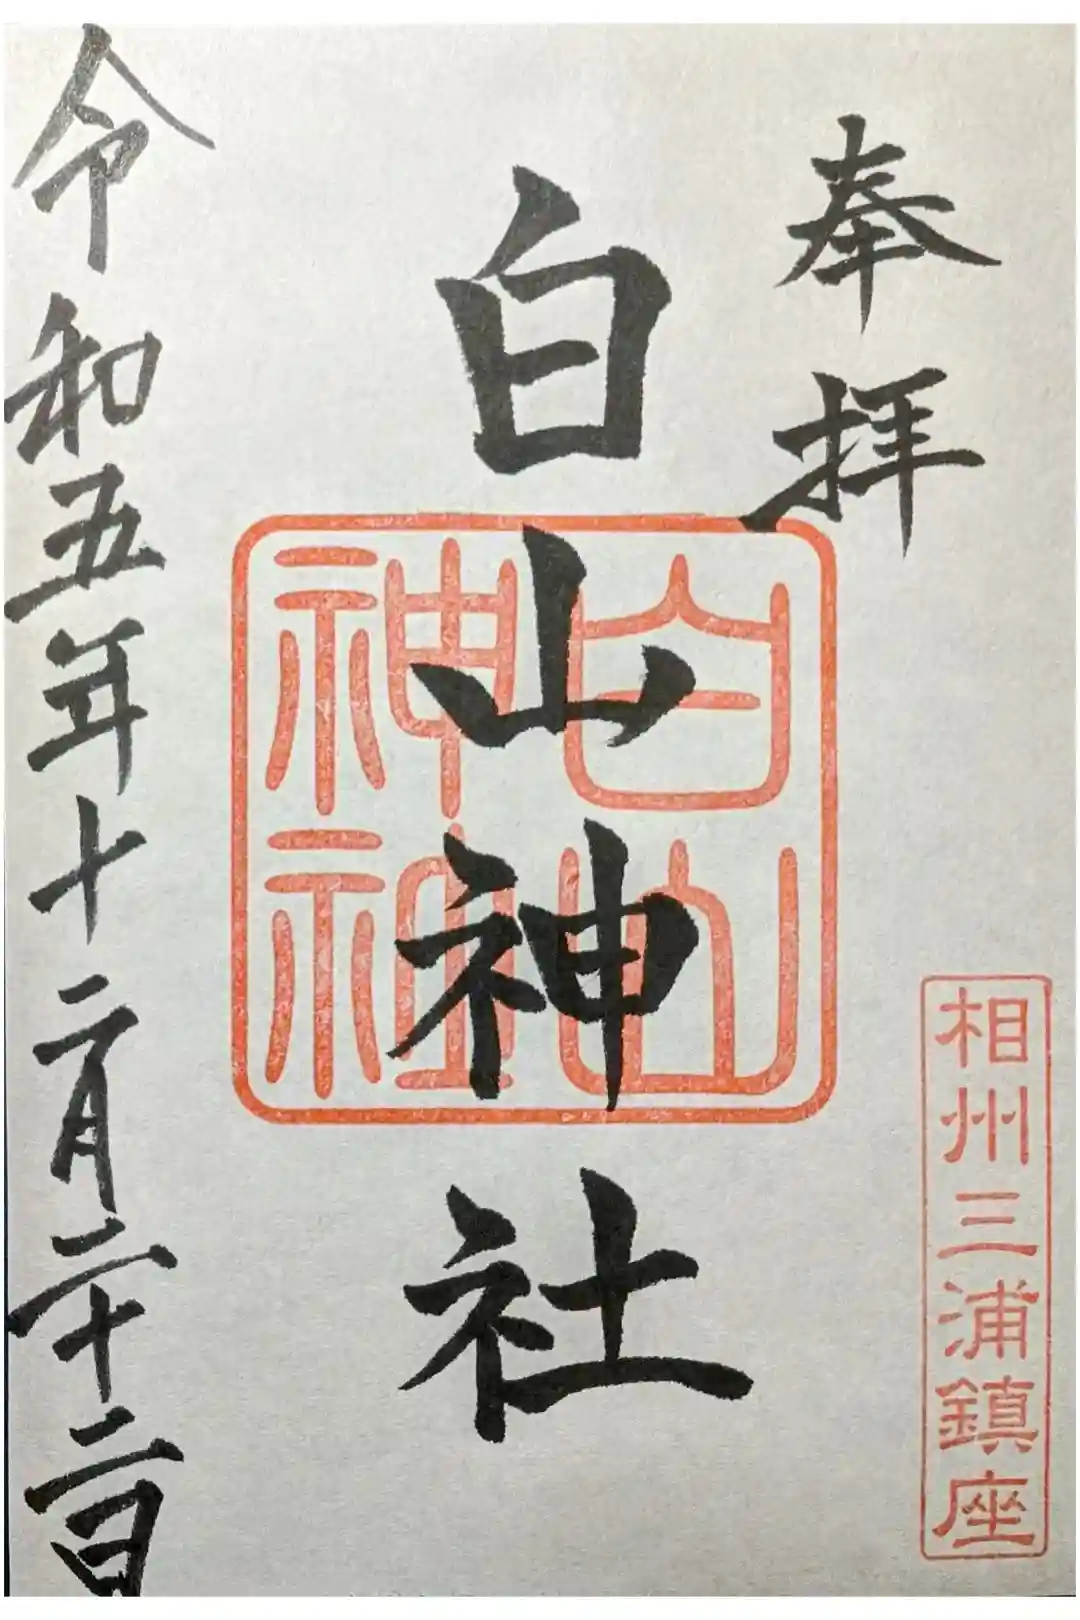 奉拝
相州三浦鎮座
白山神社
白山
神社
令和五年十二月二十二日